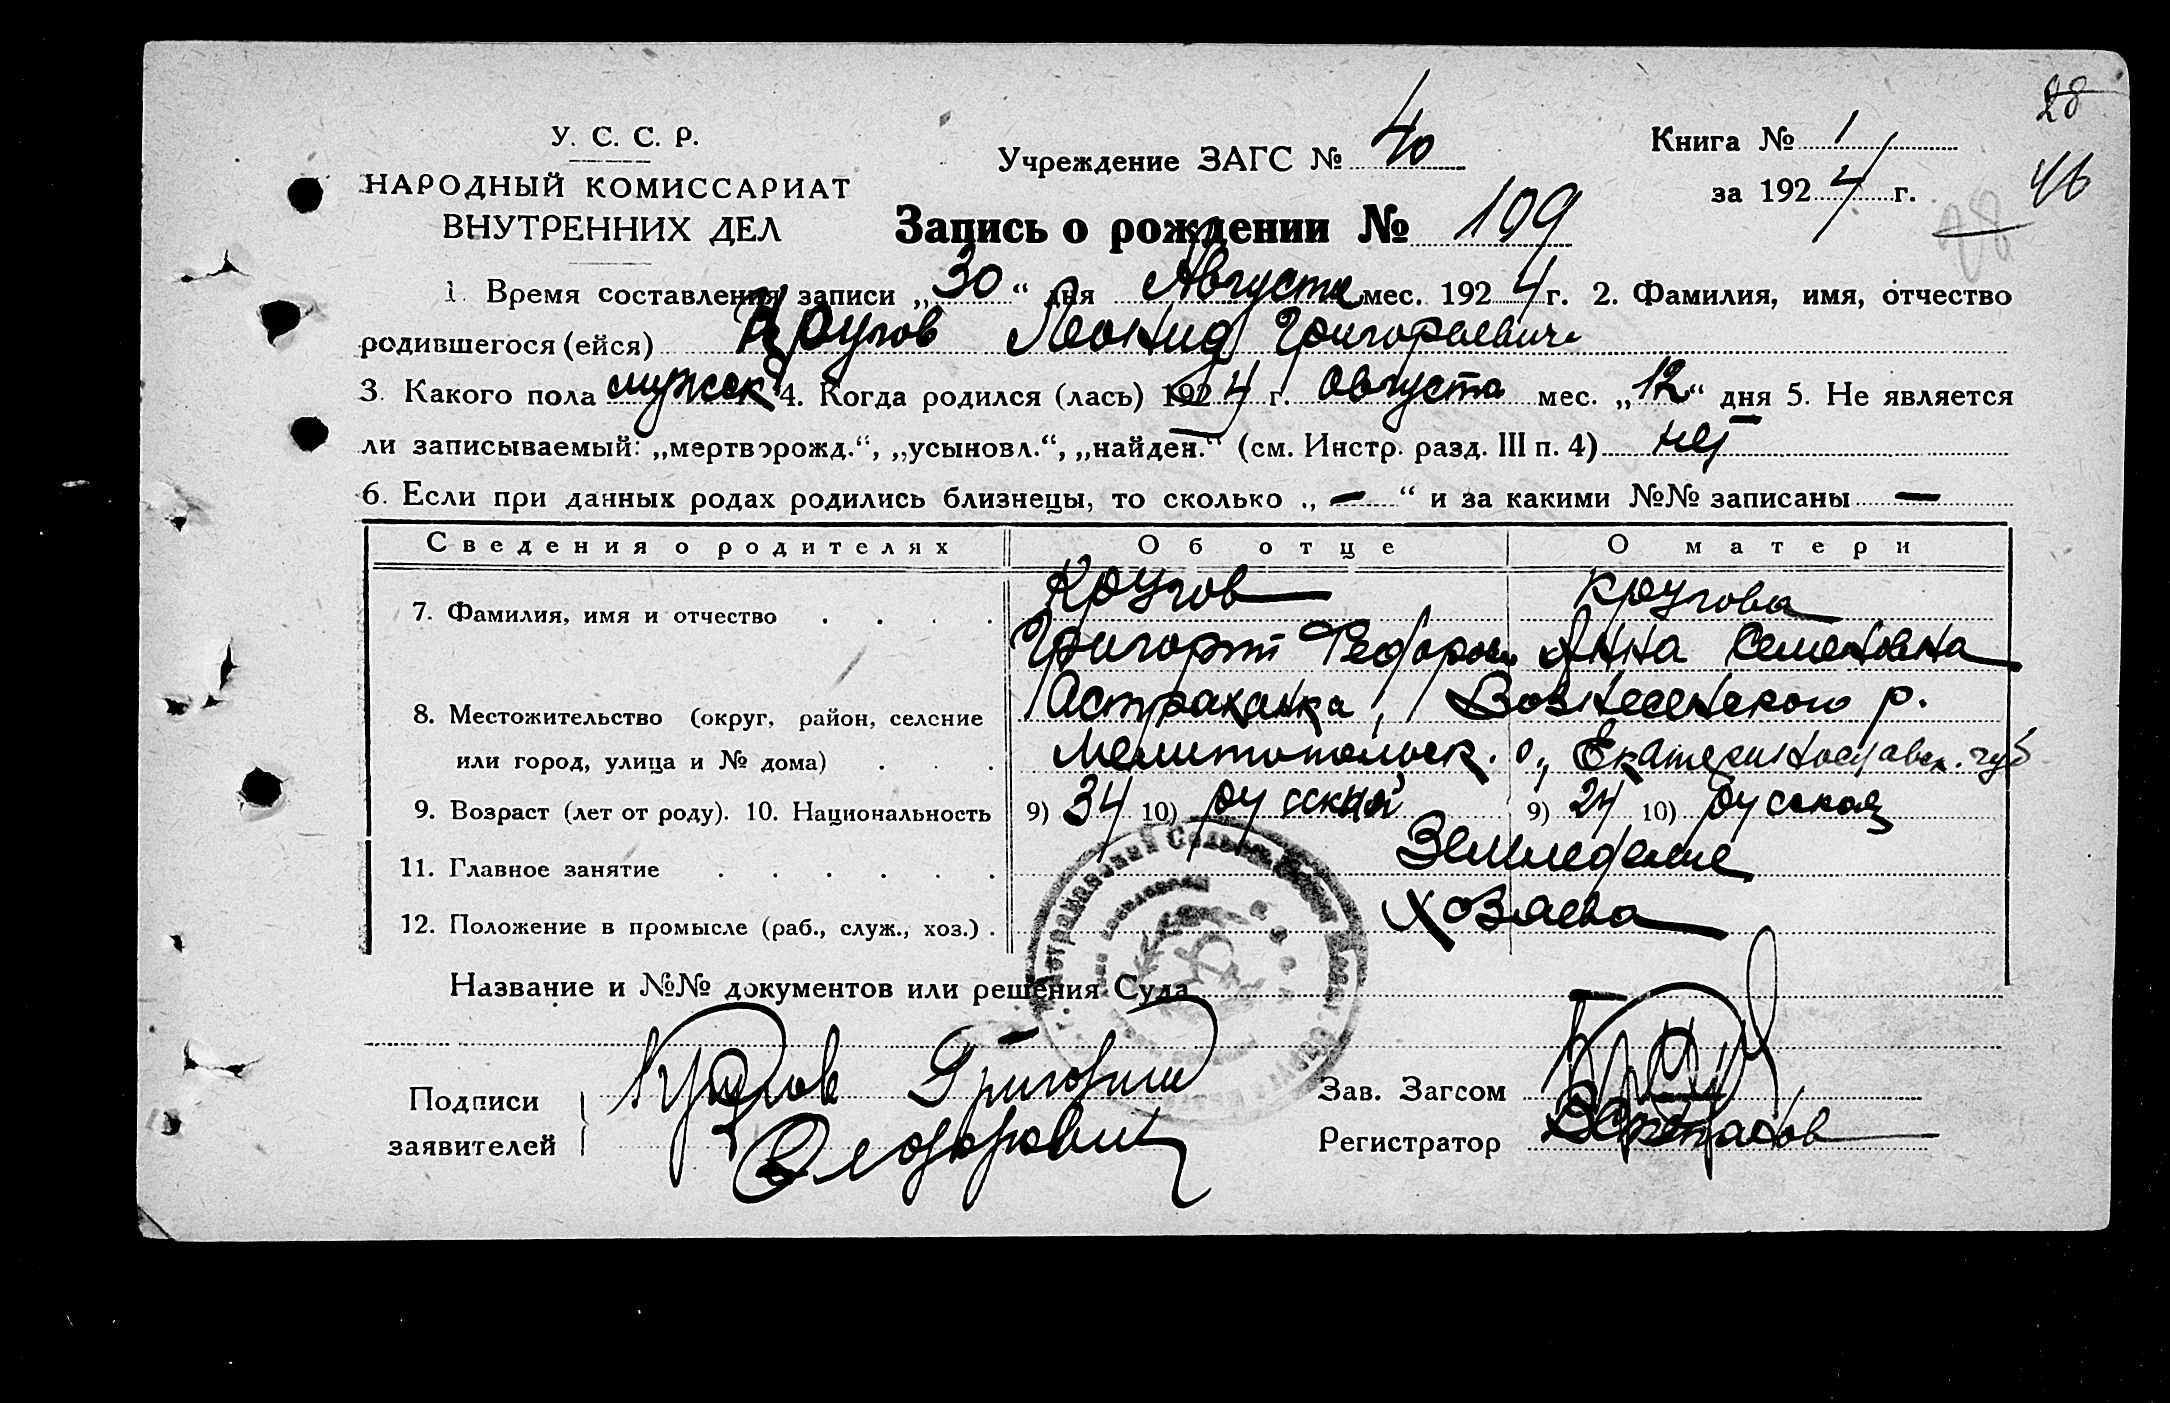 28
У. С. С. Р.
Учреждение ЗАГС № 40
Книга № 1
НАРОДНЫЙ КОМИССАРИАТ
за 1924 г.
46
ВНУТРЕННИХ ДЕЛ
Запись о рождении № 109
1. Время составления записи „30“ дня Августа мес. 1924 г. 2. Фамилия, имя, отчество
родившегося (ейся) Кругов Леонид Григорьевич
3. Какого пола мужск 4. Когда родился (лась) 1924 г. Августа мес. „12“ дня 5. Не является
ли записываемый: „мертворожд.“, „усыновл.“, „найден.“ (см. Инстр. разд. III п. 4) нет
6. Если при данных родах родились близнецы, то сколько „ — “ и за какими №№ записаны —
Сведения о родителях Об отце О матери
Кругов Кругова
7. Фамилия, имя и отчество
Григорий Федоров Анна Семеновна
8. Местожительство (округ, район, селение Астраханка, Вознесенского р.
или город, улица и № дома) Мелитопольск. о., Екатеринославск. губ
9. Возраст (лет от роду). 10. Национальность 9) 34 10) русский 9) 24 10) русская
11. Главное занятие Земледелие
12. Положение в промысле (раб., служ., хоз.) хозяева
Название и №№ документов или решения Суда
Подписи
заявителей
Кругов Григорий
Феодорович
Зав. Загсом
Регистратор